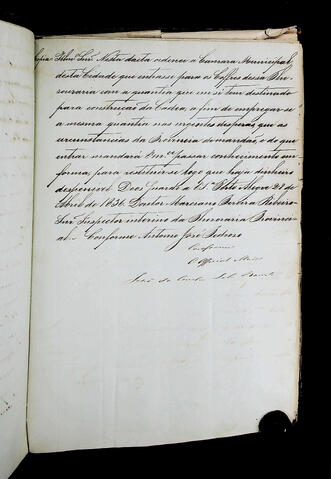 Copia. Illmo Snr. Nesta dacta ordenei a Camara Municipal
desta Cidade que entrasse para os Coffres dessa The-
souraria com a quantia que em si tem destinado
para construcção da Cadea, a fim de empregar-se
a mesma quantia nas urgentes despezas que as
circunstancias da Provincia demandão, e do que
entrar mandará Vmce passar conhecimento em
forma, para restituir-se logo que haja dinheiro
despenivel. Deos Guarde a VS. Porto Alegre 21 de
Abril de 1836. Doutor Marciano Pereira Ribeiro
Snr. Inspector interino da Thesouraria Provinci-
al. Conforme Antonio José Pedroso
Conforme
O Official Maior
João da Cunha